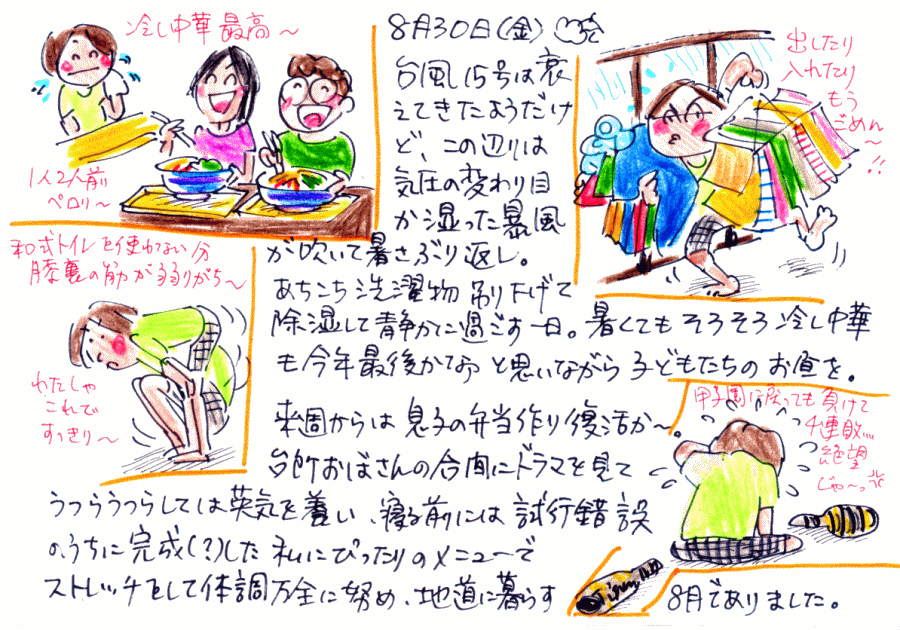 冷し中華最高～
1人2人前
ペロリ～
8月30日(金)
台風15号は衰
えてきたようだけ
ど、この辺りは
気圧の変わり目
か湿った暴風
が吹いて暑さぶり返し。
あちこち洗濯物吊り下げて
除湿して静かに過ごす一日。暑くてもそろそろ冷し中華
も今年最後かなぁと思いながら子どもたちのお昼を。
出したり
入れたり
もう
ごめん
～!!
和式トイレを使わない分
膝裏の筋が弱りがち～
わたしゃ
これで
すっきり～
来週からは息子の弁当作り復活か～。
台所おばさんの合間にドラマを見て
うつらうつらしては英気を養い、寝る前には試行錯誤
のうちに完成(?)した私にぴったりのメニューで
ストレッチをして体調万全に努め、地道に暮らす
8月でありました。
甲子園に戻っても負けて
4連敗…
絶望
じゃ～っ